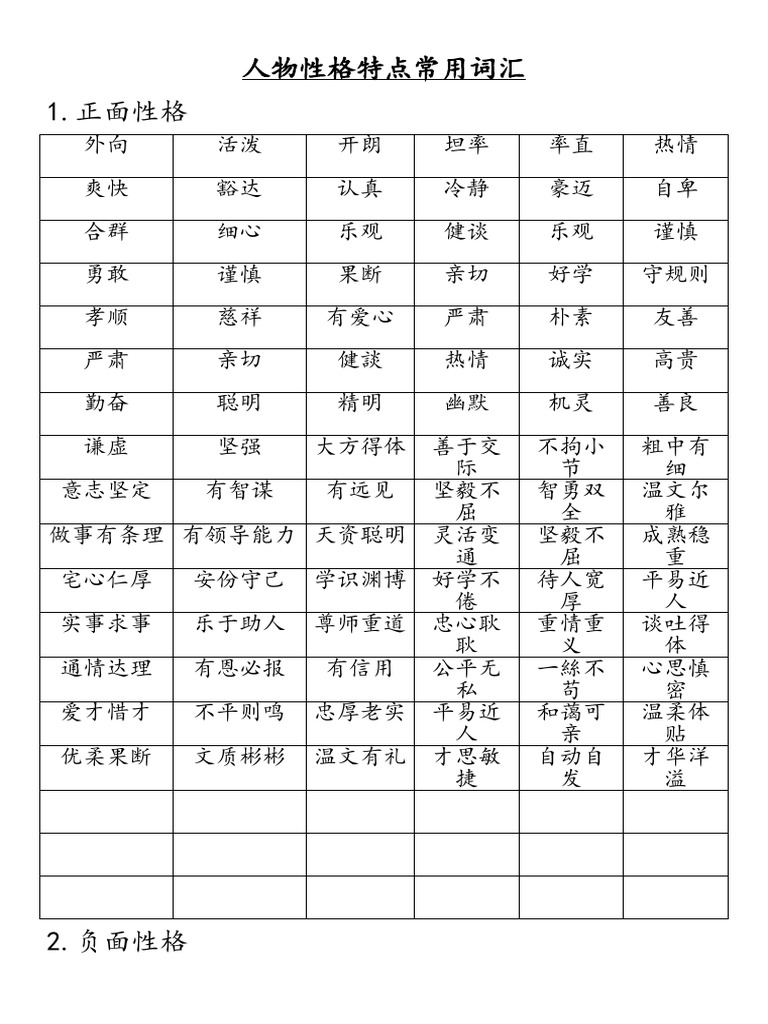 人物性格特点常用词汇
1.正面性格
外向 活泼 开朗 坦率 率直 热情
爽快 豁达 认真 冷静 豪迈 自卑
合群 细心 乐观 健谈 乐观 谨慎
勇敢 谨慎 果断 亲切 好学 守规则
孝顺 慈祥 有爱心 严肃 朴素 友善
严肃 亲切 健談 热情 诚实 高贵
勤奋 聪明 精明 幽默 机灵 善良
谦虚 坚强 大方得体 善于交际 不拘小节 粗中有细
意志坚定 有智谋 有远见 坚毅不屈 智勇双全 温文尔雅
做事有条理 有领导能力 天资聪明 灵活变通 坚毅不屈 成熟稳重
宅心仁厚 安份守己 学识渊博 好学不倦 待人宽厚 平易近人
实事求事 乐于助人 尊师重道 忠心耿耿 重情重义 谈吐得体
通情达理 有恩必报 有信用 公平无私 一絲不苟 心思慎密
爱才惜才 不平则鸣 忠厚老实 平易近人 和蔼可亲 温柔体贴
优柔果断 文质彬彬 温文有礼 才思敏捷 自动自发 才华洋溢
2.负面性格